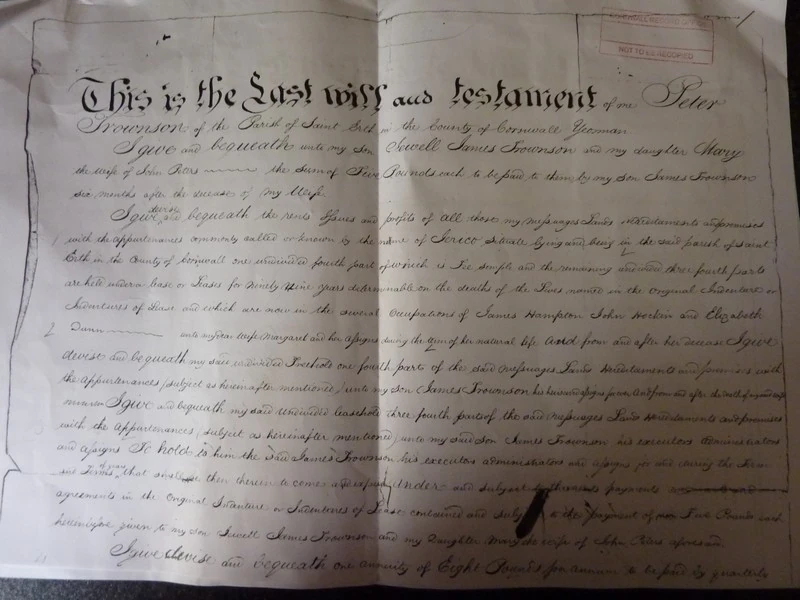 CORNWALL RECORD OFFICE
NOT TO BE RECOPIED
This is the Last will and testament of me Peter
Trownson of the Parish of Saint Erth in the County of Cornwall Yeoman
I give and bequeath unto my Son Sewell James Trownson and my daughter Mary
the wife of John Peters the Sum of Five Pounds each to be paid to them by my son James Trownson
six months after the decease of my Wife
I give devise and bequeath the rents Issues and profits of all those my Messuages Lands Hereditaments and premises
with the appurtenances commonly called or known by the name of Jerico Situate lying and being in the said parish of Saint
Erth in the County of Cornwall one undivided fourth part of which is Fee Simple and the remaining undivided three fourth parts
are held under a lease or Leases for Ninety Nine Years determinable on the deaths of the Lives named in the Original Indenture or
Indentures of Lease and which are now in the several Occupations of James Hampton John Hockin and Elizabeth
Dunn unto my dear Wife Margaret and her assigns during the term of her natural life And from and after her decease I give
devise and bequeath my said undivided Freehold one fourth parts of the said Messuages Lands Hereditaments and premises with
the appurtenances /subject as hereinafter mentioned/ unto my Son James Trownson his heirs and assigns for ever And from and after the death of my said wife
I give and bequeath my said undivided leasehold three fourth parts of the said Messuages Lands Hereditaments and premises
with the Appurtenances /subject as hereinafter mentioned/ unto my said Son James Trownson his executors administrators
and assigns To hold to him the said James Trownson his executors administrators and assigns for and during the
Term of years that shall be then therein to come and Under and subject to the payments
agreements in the Original Indenture or Indentures of Lease contained and subject to the payment of Five Pounds each
hereinbefore given to my son Sewell James Trownson and my Daughter Mary the wife of John Peters aforesaid
I give devise and bequeath one annuity of Eight Pounds per annum to be paid by quarterly